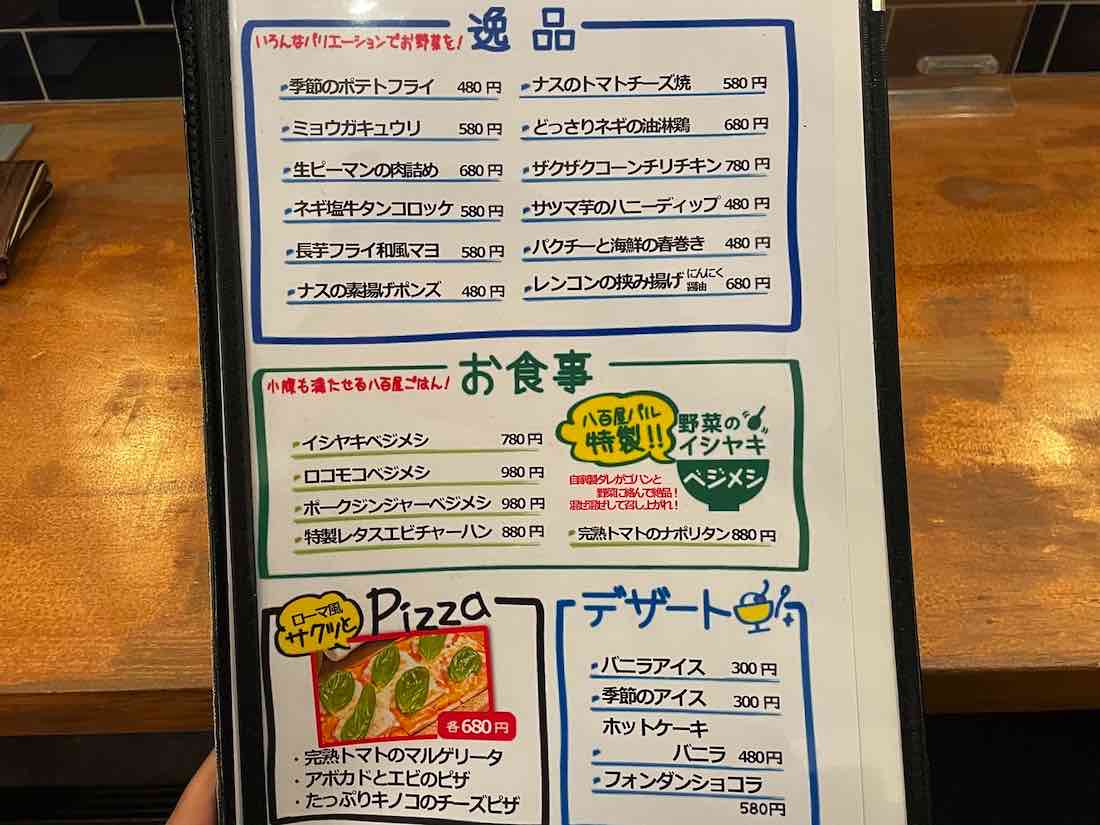 いろんなバリエーションでお野菜を!
逸品
季節のポテトフライ 480円
ミョウガキュウリ 580円
生ピーマンの肉詰め 680円
ネギ塩牛タンコロッケ 580円
長芋フライ和風マヨ 580円
ナスの素揚げポンズ 480円
ナスのトマトチーズ焼 580円
どっさりネギの油淋鶏 680円
ザクザクコーンチリチキン 780円
サツマ芋のハニーディップ 480円
パクチーと海鮮の春巻き 480円
レンコンの挟み揚げ にんにく醤油 680円
小腹も満たせる八百屋ごはん!
お食事
イシヤキベジメシ 780円
ロコモコベジメシ 980円
ポークジンジャーベジメシ 980円
特製レタスエビチャーハン 880円
八百屋バル
特製!!
野菜の
イシヤキ
ベジメシ
自家製ダレがゴハンと
野菜に絡んで絶品!
混ぜ混ぜして召し上がれ!
完熟トマトのナポリタン 880円
ローマ風
サクッと
Pizza
各680円
・完熟トマトのマルゲリータ
・アボカドとエビのピザ
・たっぷりキノコのチーズピザ
デザート
バニラアイス 300円
季節のアイス 300円
ホットケーキ
バニラ 480円
フォンダンショコラ
580円